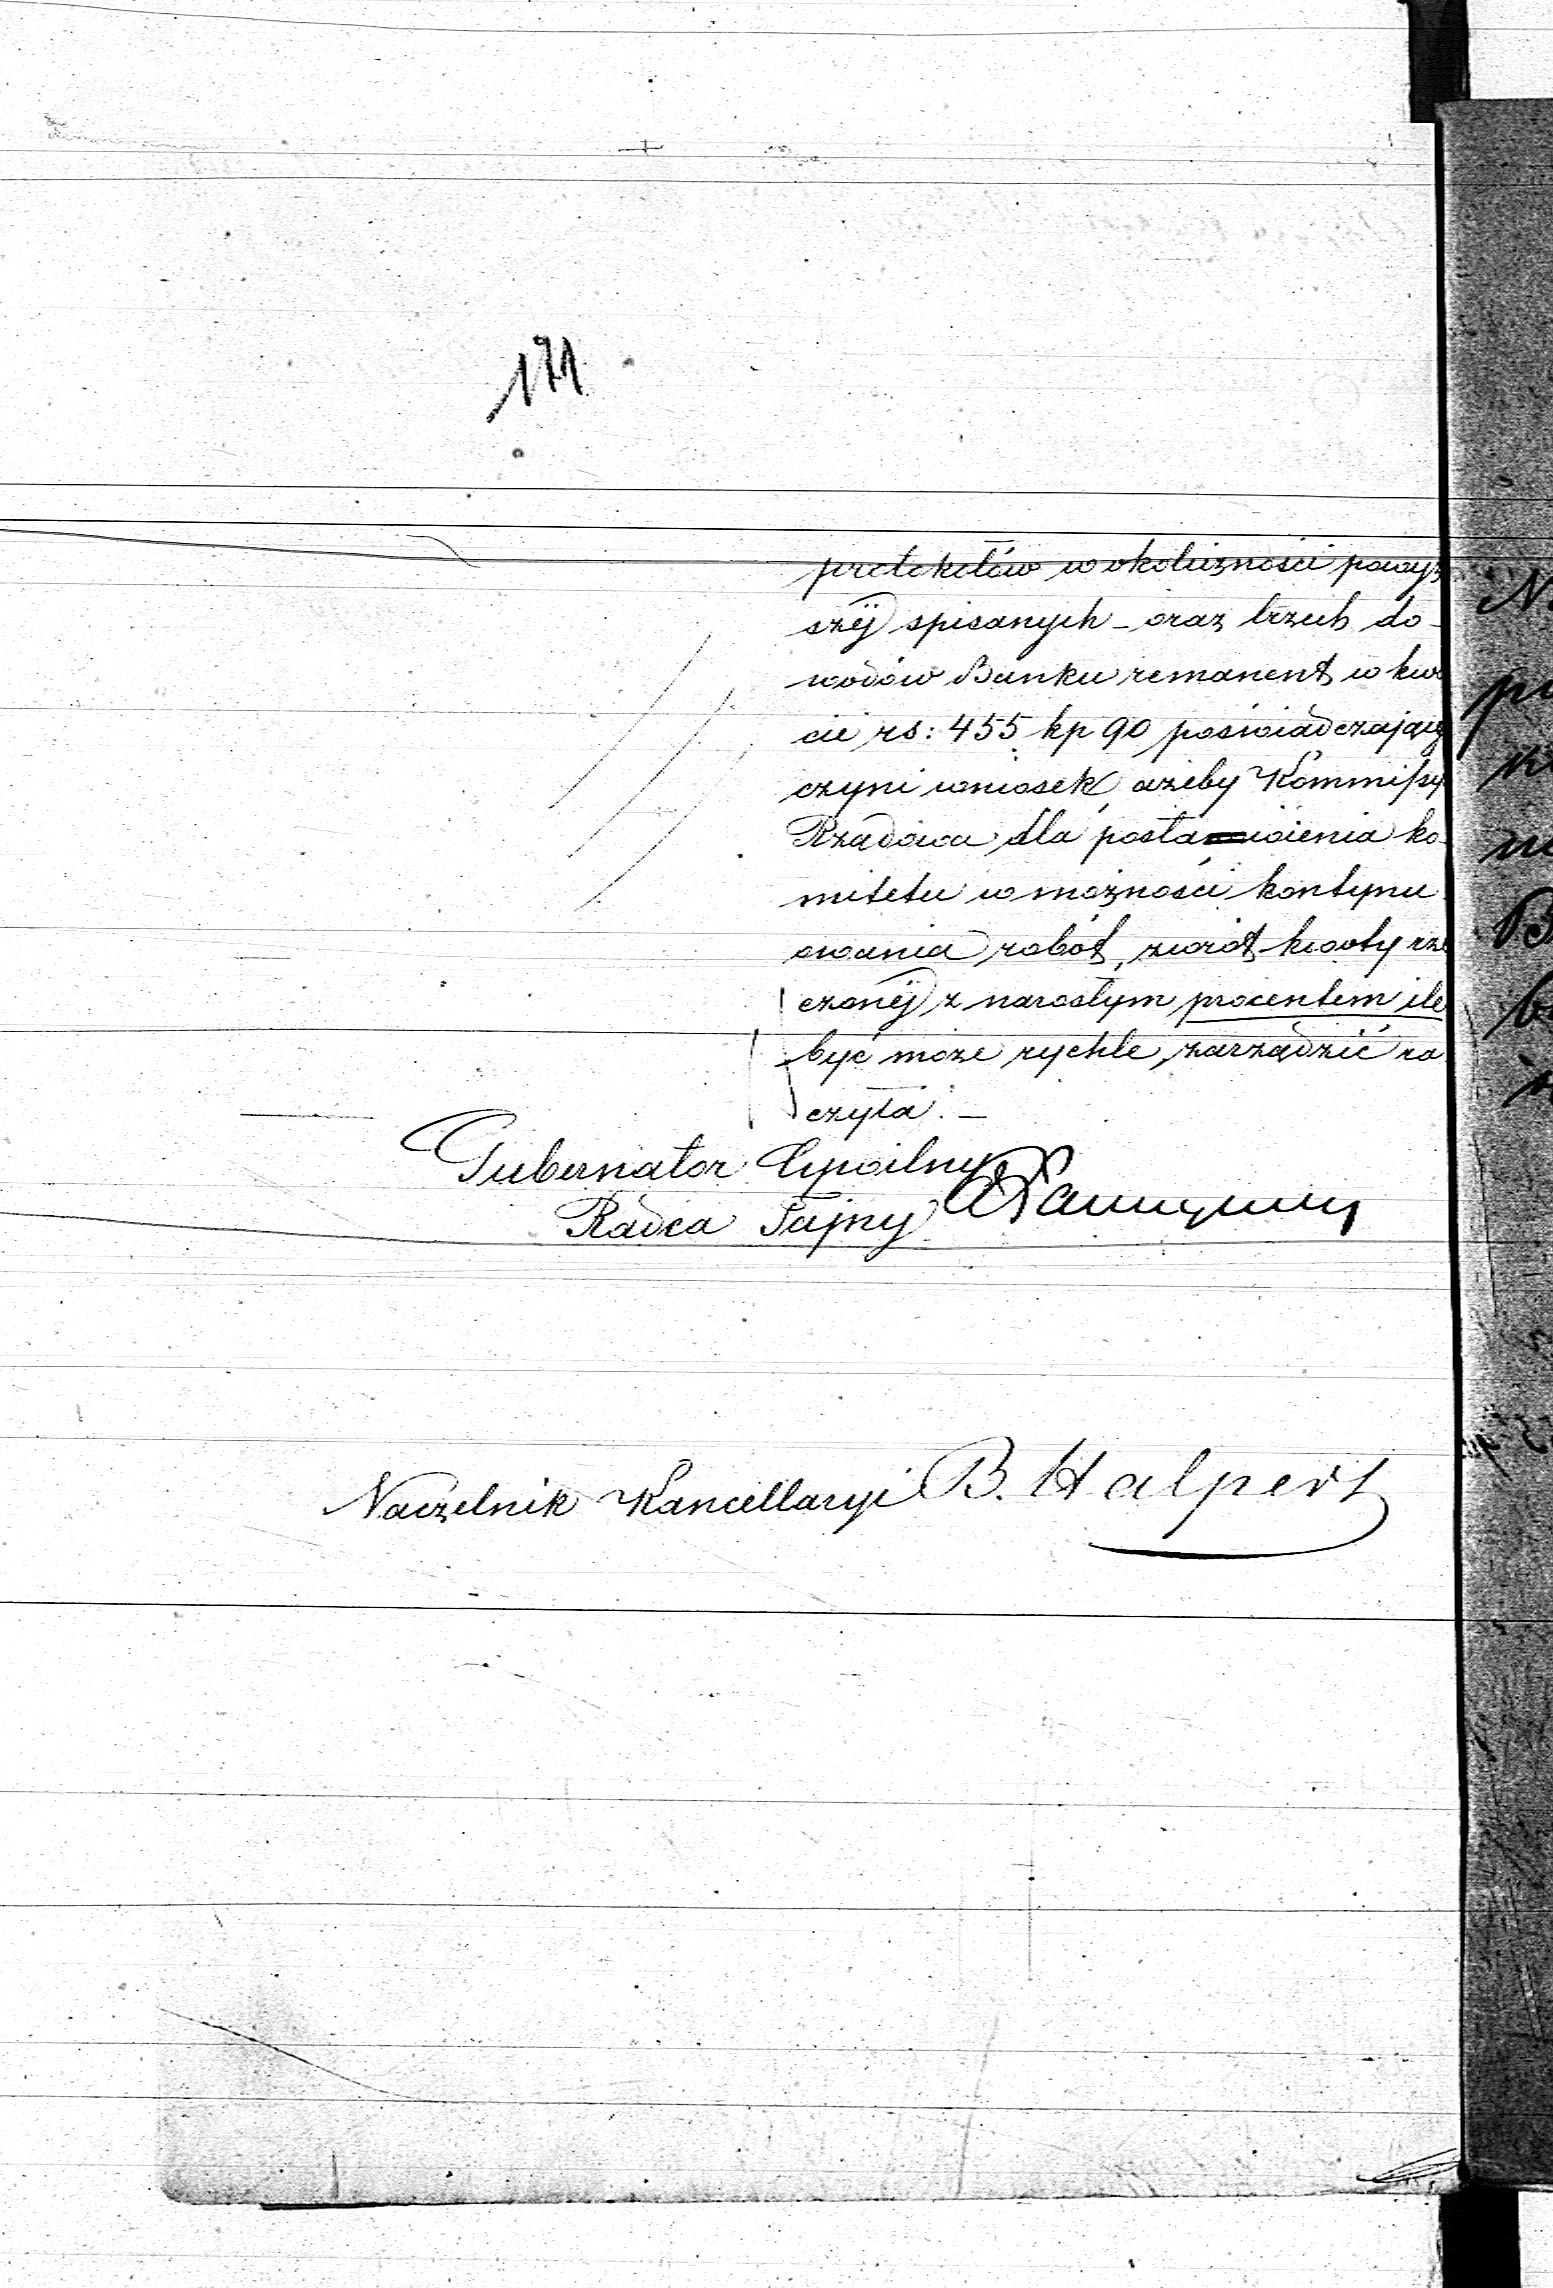 171
protokołów w okoliczności powyż
széj spisanych – oraz trzech do-
wodów Banku remanent w kwo
cie rs: 455 kp 90 poświadczających
czyni wniosek, ażeby Kommissya
Rządowa dla postawienia ko-
mitetu w możności kontynu-
owania robót, zwrót kwoty rze
czonéj z narosłym procentem ile
być może rychle, zarządzić ra
czyła. –
Gubernator Cywilny
Radca Tajny
Naczelnik Kancellaryi B. Halpert